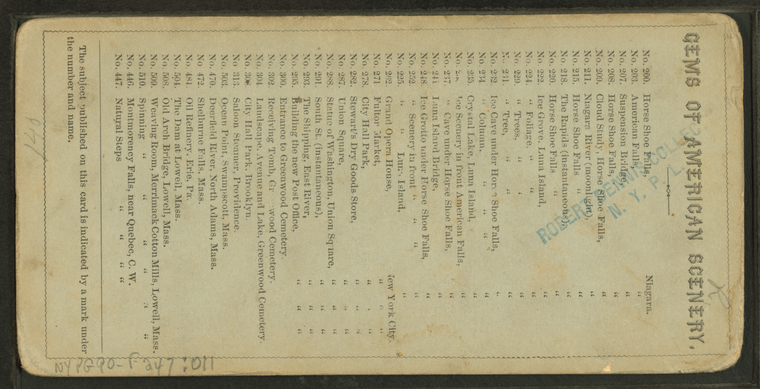 GEMS OF AMERICAN SCENERY.
No. 200. Horse Shoe Falls, Niagara.
No. 203. American Falls, "
No. 207. Suspension Bridge, "
No. 208. Horse Shoe Falls, "
No. 209. Cloud Study Horse Shoe Falls, "
No. 211. Niagara River (moonlight), "
No. 215. Horse Shoe Falls "
No. 218. The Rapids (instantaneous) "
No. 220. Horse Shoe Falls " "
No. 222. Ice Grove, Luna Island, "
No. 224. " Foliage, " "
No. 229. " Trees, " "
No. 231. " Tree, " "
No. 232. Ice Cave under Horse Shoe Falls, "
No. 234. " Column, " " " "
No. 235. Crystal Lake, Luna Island, "
Ice Scenery in front American Falls, "
No. 237. " Cave under Horse Shoe Falls, "
No. 244. Luna Island Bridge, "
No. 248. Ice Grotto under Horse Shoe Falls, "
No. 252. " Scenery in front " " " "
No. 225. " " Luna Island, "
No. 262. Grand Opera House, New York City.
No. 271. Fulton Market, " "
No. 278. City Hall Park, " "
No. 282. Stewart's Dry Goods Store, " "
No. 287. Union Square, " "
No. 288. Statue of Washington, Union Square, " "
No. 291. South St. (instantaneous), " "
No. 293. The Shipping, East River, " "
No. 295. Building the new Post Office, " "
No. 300. Entrance to Greenwood Cemetery.
No. 302. Receiving Tomb, Greenwood Cemetery.
No. 304. Landscape, Avenue and Lake, Greenwood Cemetery.
City Hall Park, Brooklyn.
No. 313. Saloon Steamer, Providence.
No. 503. Ocean Point, Swampscott, Mass.
No. 470. Deerfield River, North Adams, Mass.
No. 472. Shelburne Falls, Mass.
No. 484. Oil Refinery, Erie, Pa
No. 504. The Dam at Lowell, Mass.
No. 508. Oil Arch Bridge, Lowell, Mass.
No. 509. Weaving Room, Merrimack Cotton Mills, Lowell, Mass.
No. 510. Spinning " " " " " "
No. 446. Montmorency Falls, near Quebec, C. W.
No. 447. Natural Steps " " "
The subject published on this card is indicated by a mark under
the number and name.
ROBERT DENNIS COLLE
N. Y. P. L.
NYPG90-F247:011